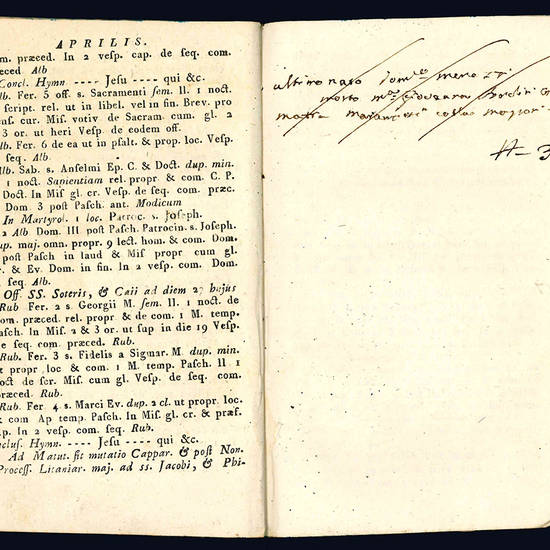 APRILIS.
om. præced. In 2 vesp. cap. de seq. com.
æced Alb
Concl. Hymn ---- Jesu ---- qui &c.
lb. Fer. 5 off. s. Sacramenti sem. ll. 1 noct.
script. rel. ut in libel. vel in fin. Brev. pro
ens. cur. Mis. votiv de Sacram. cum. gl. 2
3 or. ut heri Vesp de eodem off.
lb. Fer. 6 de ea ut in psalt. & prop. loc. Vesp.
seq. Alb.
lb. Sab. s. Anselmi Ep. C. & Doct. dup. min.
1 noct. Sapientiam rel. propr & com. C. P.
Doct. In Mis gl cr. Vesp. de seq. com. præc.
Dom. 3 post Pasch. ant. Modicum
In Martyrol. 1 loc. Patroc. s. Joseph.
2 Alb Dom. III post Pasch. Patrocin. s. Joseph.
up. maj. omn. propr. 9 lect. hom. & com. Dom.
post Pasch in laud & Mis propr cum gl.
r. & Ev. Dom. in fin. In 2 vesp. com. Dom.
seq. Alb.
Off. SS. Soteris, & Caii ad diem 27 hujus
Rub Fer. 2 s. Georgii M. sem. ll. 1 noct. de
om. præced. rel. propr & de com. 1 M. temp.
asch. In Mis. 2 & 3 or. ut sup in die 19 Vesp.
e seq. com. præced. Rub.
Rub. Fer. 3 s. Fidelis a Sigmar. M. dup. min.
t propr loc & com 1 M. temp. Pasch. ll 1
oct de scr. Mis. cum gl. Vesp. de seq. com.
ræced. Rub.
Rub. Fer 4 s. Marci Ev. dup. 2 cl. ut propr. loc.
& com Ap temp. Pasch. In Mis. gl. cr. & præf.
p. In 2 vesp. com. seq. Rub.
nclus. Hymn. ---- Jesu ---- qui &c.
Ad Matut. fit mutatio Cappar. & post Non.
Process. Litaniar. maj. ad ss. Jacobi, & Phi-
morto Giovanna